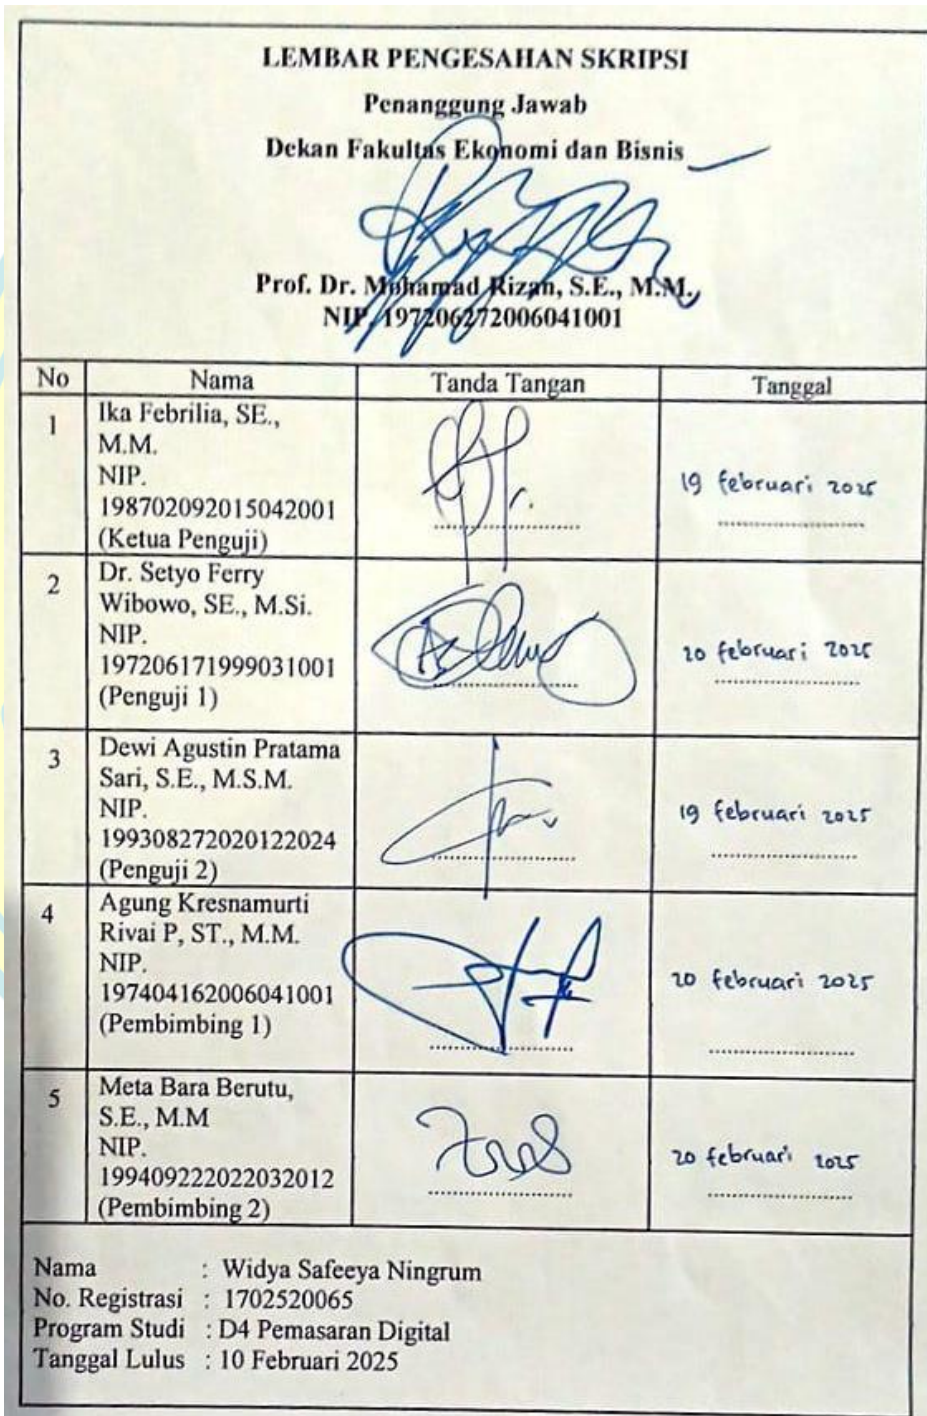 LEMBAR PENGESAHAN SKRIPSI
Penanggung Jawab
Dekan Fakultas Ekonomi dan Bisnis
Prof. Dr. Mohamad Rizan, S.E., M.M.,
NIP. 197206272006041001
No Nama Tanda Tangan Tanggal
1 Ika Febrilia, SE.,
M.M.
NIP.
198702092015042001
(Ketua Penguji)
19 februari 2025
2 Dr. Setyo Ferry
Wibowo, SE., M.Si.
NIP.
197206171999031001
(Penguji 1)
20 februari 2025
3 Dewi Agustin Pratama
Sari, S.E., M.S.M.
NIP.
199308272020122024
(Penguji 2)
19 februari 2025
4 Agung Kresnamurti
Rivai P, ST., M.M.
NIP.
197404162006041001
(Pembimbing 1)
20 februari 2025
5 Meta Bara Berutu,
S.E., M.M
NIP.
199409222022032012
(Pembimbing 2)
20 februari 2025
Nama : Widya Safeeya Ningrum
No. Registrasi : 1702520065
Program Studi : D4 Pemasaran Digital
Tanggal Lulus : 10 Februari 2025